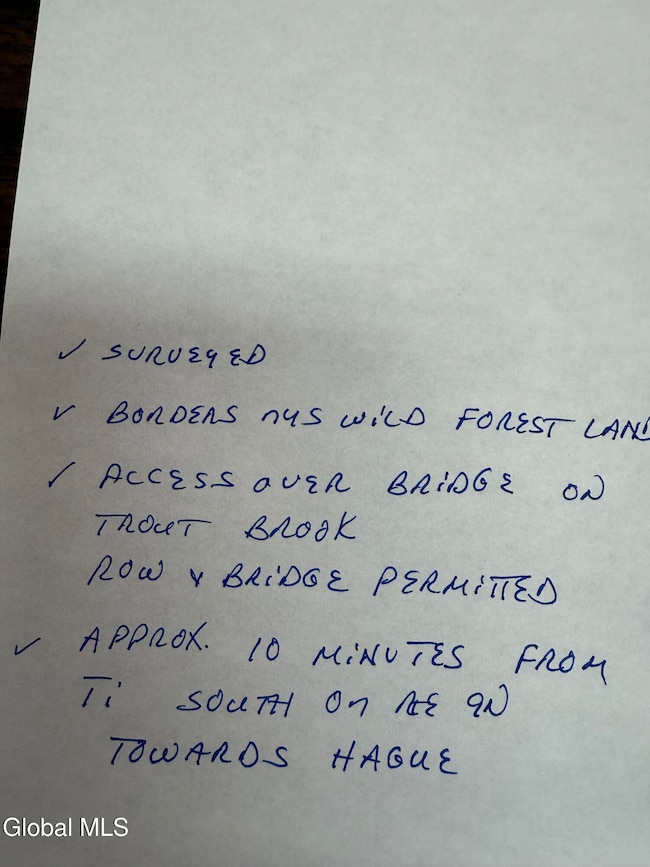 ✓ SURVEYED
✓ BORDERS NYS WILD FOREST LAND
✓ ACCESS OVER BRIDGE ON
TROUT BROOK
ROW & BRIDGE PERMITTED
✓ APPROX. 10 MINUTES FROM
Ti SOUTH ON RTE 9N
TOWARDS HAGUE
Global MLS